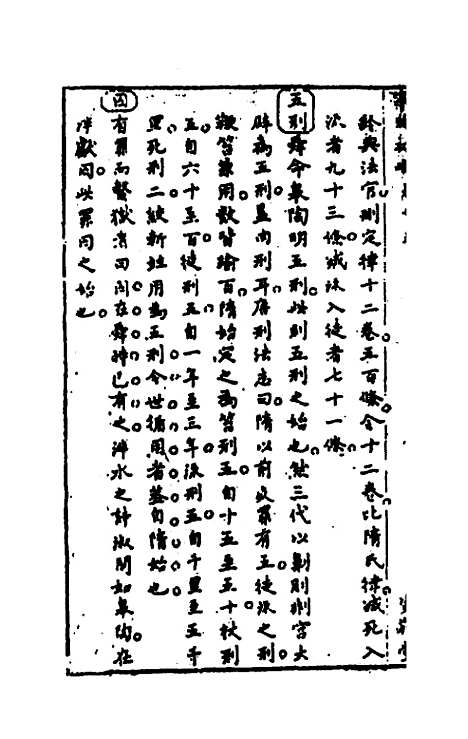 餘與法官刪定律十二卷五百條令十二卷比隋氏律减死入
流者九十三條减流入徒者七十一條
五刑舜命臯陶明五刑此則五刑之始也然三代以劓刖荆宮大
辟為五刑盖肉刑耳唐刑法志曰隋以前收罪有五徒流之刑
鞭笞兼用數皆踰百隋始定之為笞刑五自十五至五十杖刑
五自六十至百徒刑五自一年至三年流刑五自千里至五千
里死刑二絞斬並用為五刑今世循用者葢自隋始也
囚有罪而繫獄者曰囚在舜時已有之泮水之詩淑問如臯陶在
泮獻囚此罪囚之始也